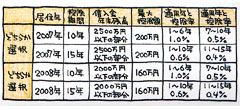 居住年 控除期間 借入金年末残高 最大控除額 適用年と控除率 適用年と控除率
どちらか選択 2007年 10年 2500万円以下の部分 200万円 1~6年 1.0% 7~10年 0.5%
2007年 15年 2500万円以下の部分 200万円 1~10年 0.6% 11~15年 0.4%
どちらか選択 2008年 10年 2000万円以下の部分 160万円 1~6年 1.0% 7~10年 0.5%
2008年 15年 2000万円以下の部分 160万円 1~10年 0.6% 11~15年 0.4%